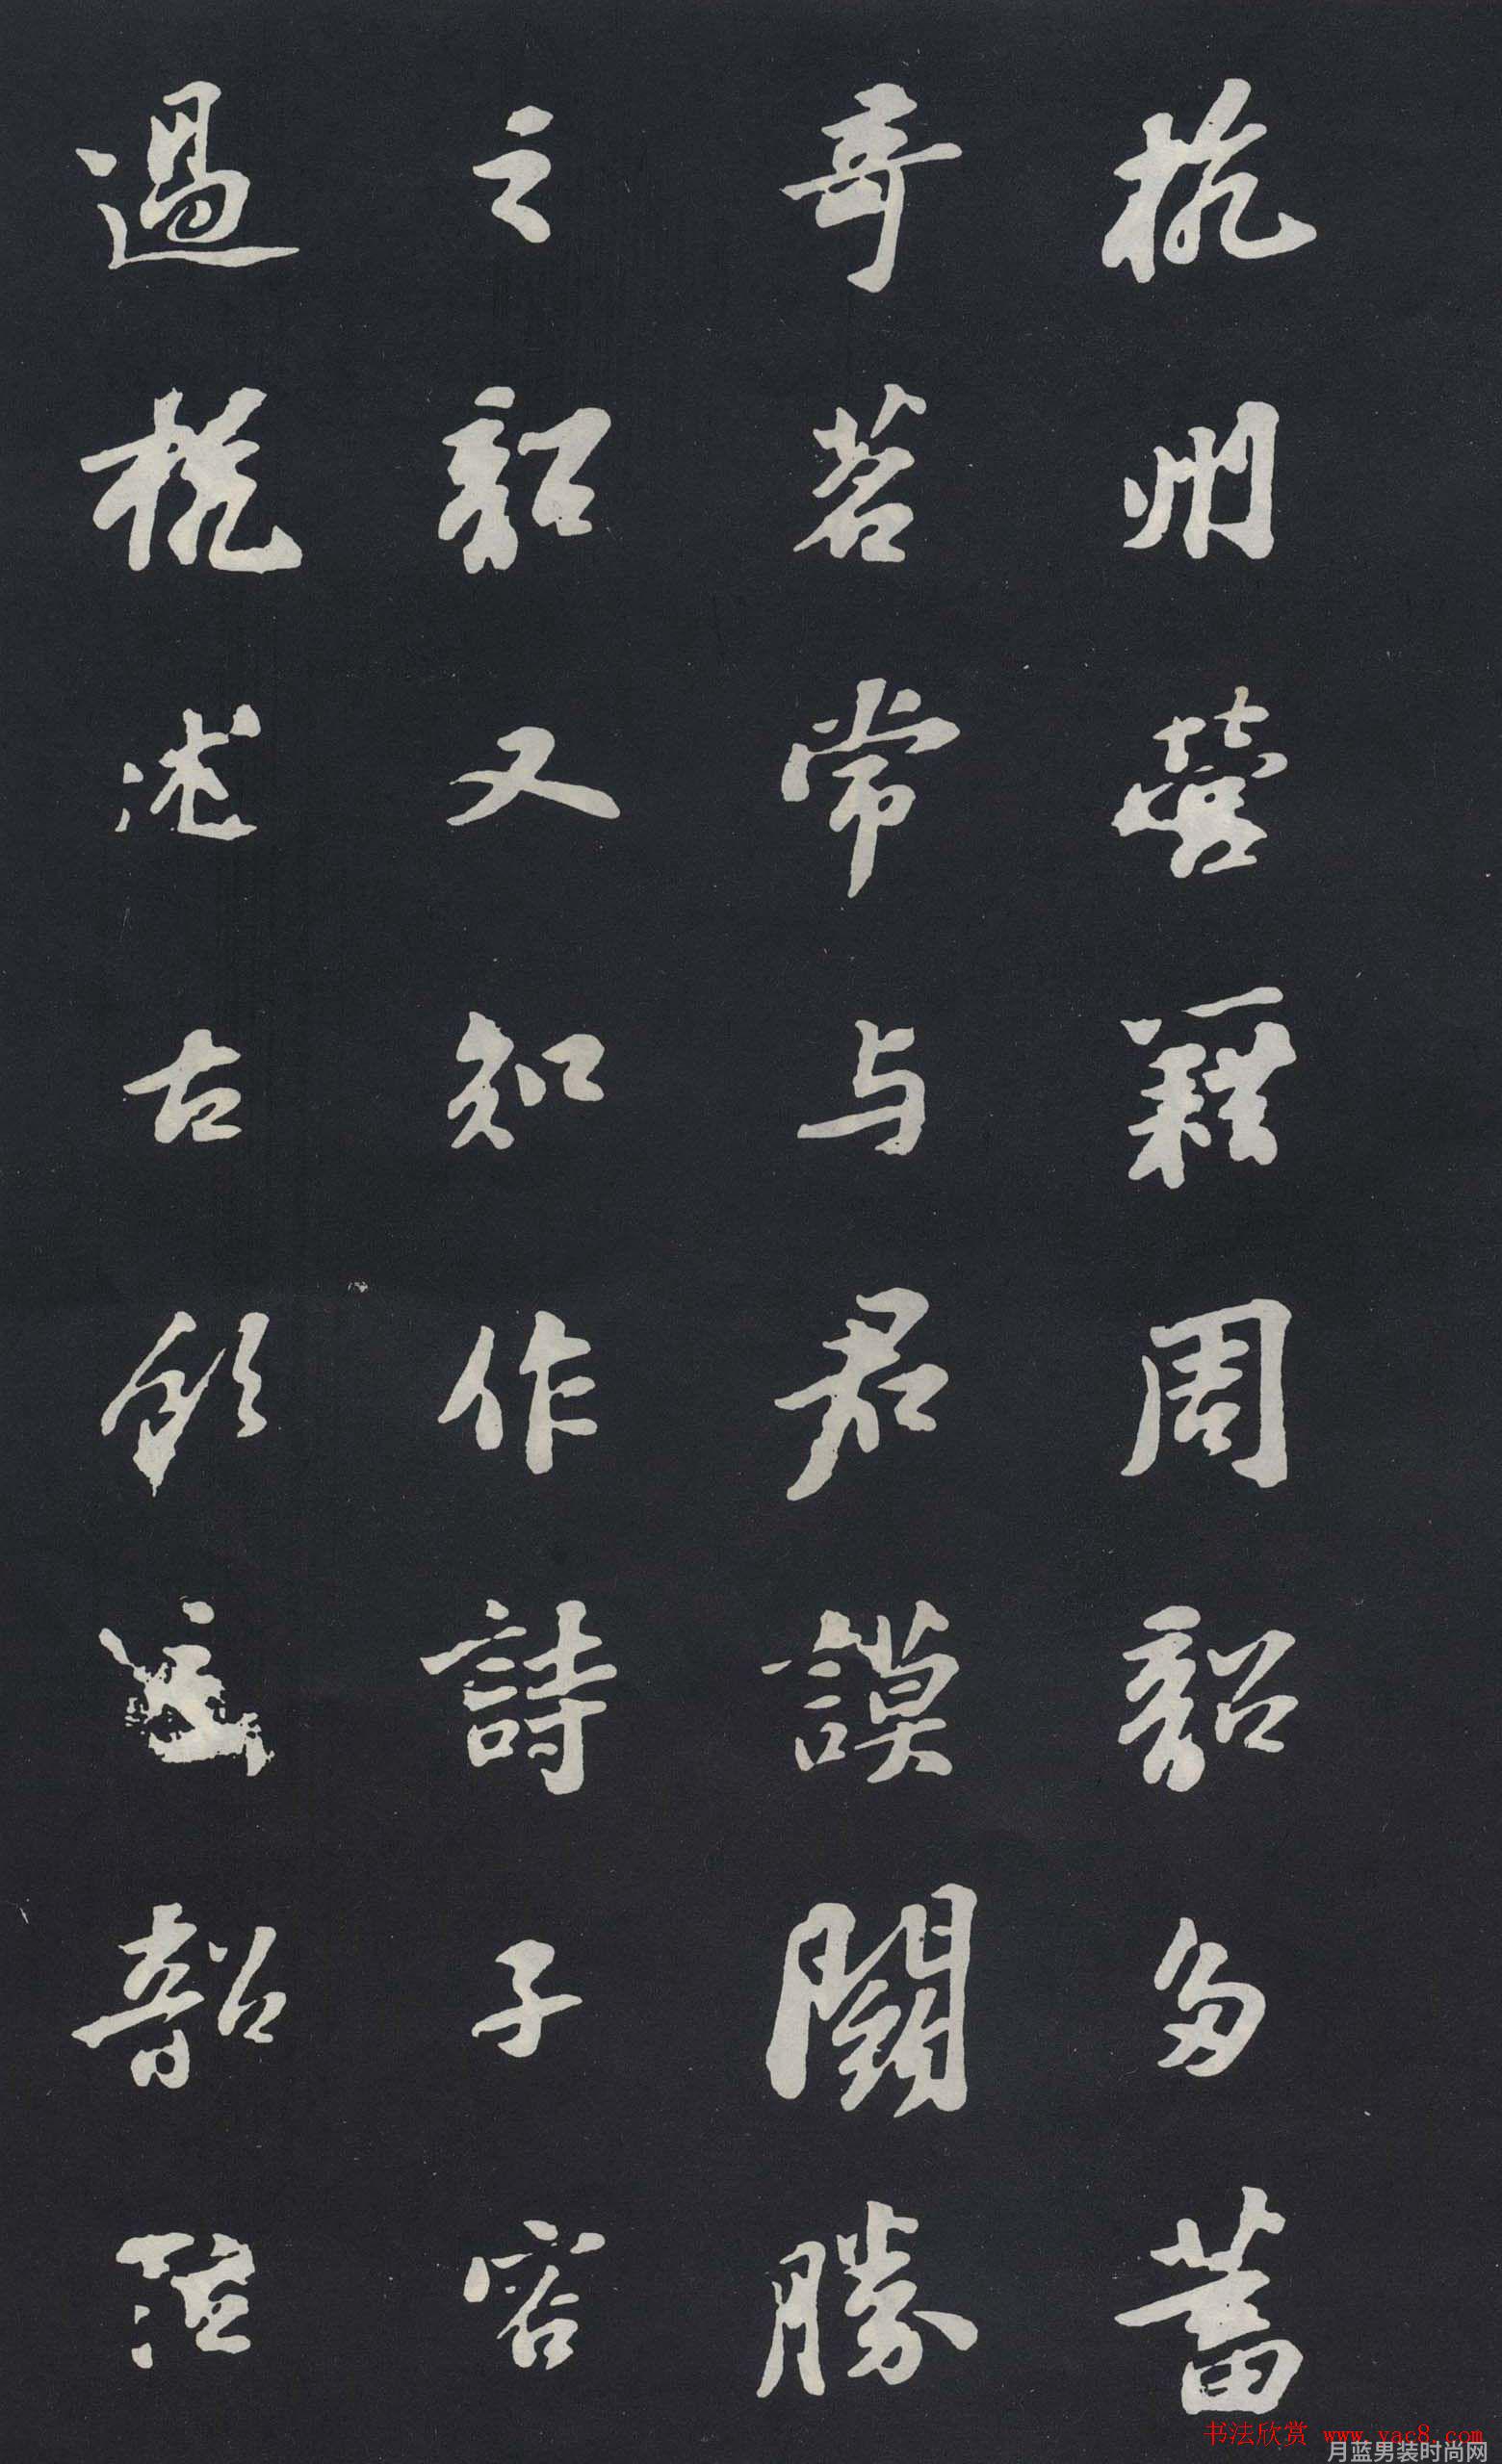 杭州營籍周韶多蓄
奇茗常与君謨鬪勝
之韶又知作詩子容
過杭述古飲之韶泣
书法欣赏 www.yac8.com
月蓝男装时尚网